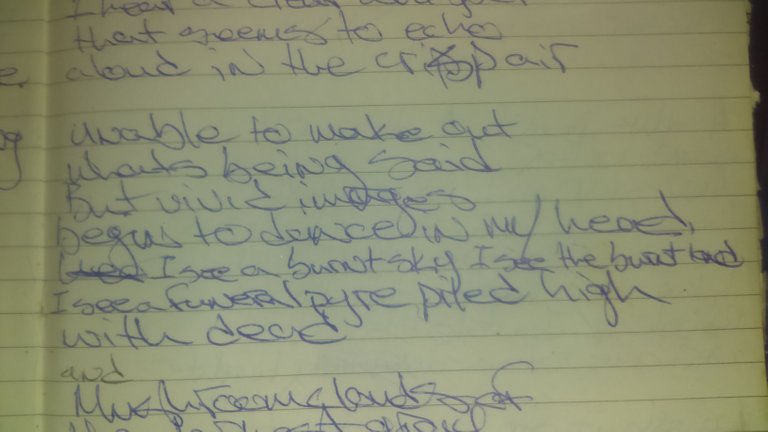 I hear a
that seems to echo
aloud in the crisp air
unable to make out
whats being said
but vivid images
begin to dance in my head,
I see a burnt sky I see the burnt land
I see a funeral pyre piled high
with dead
and
Mushroom clouds of